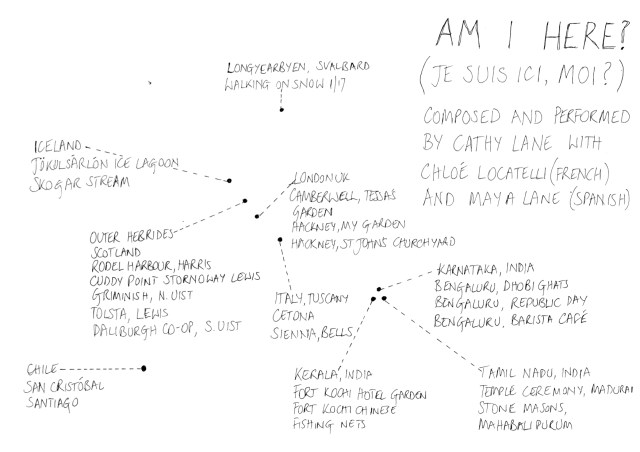 AM I HERE?
(JE SUIS ICI, MOI?)
COMPOSED AND PERFORMED
BY CATHY LANE WITH
CHLOÉ LOCATELLI (FRENCH)
AND MAYA LANE (SPANISH)
LONGYEARBYEN, SVALBARD
WALKING ON SNOW 1/17
ICELAND
JÖKULSÁRLÓN ICE LAGOON
SKOGAR STREAM
LONDON UK
CAMBERWELL, TESSAS
GARDEN
HACKNEY, MY GARDEN
HACKNEY, ST JOHNS CHURCHYARD
OUTER HEBRIDES
SCOTLAND
RODEL HARBOUR, HARRIS
CUDDY POINT STORNOWAY LEWIS
GRIMINISH, N. UIST
TOLSTA, LEWIS
DALIBURGH CO-OP, S. UIST
ITALY, TUSCANY
CETONA
SIENNIA, BELLS
KARNATAKA, INDIA
BENGALURU, DHOBI GHATS
BENGALURU, REPUBLIC DAY
BENGALURU, BARISTA CAFÉ
CHILE
SAN CRISTÓBAL
SANTIAGO
KERALA, INDIA
FORT KOCHI HOTEL GARDEN
FORT KOCHI CHINESE
FISHING NETS
TAMIL NADU, INDIA
TEMPLE CEREMONY, MADURAI
STONE MASONS,
MAHABALIPURUM